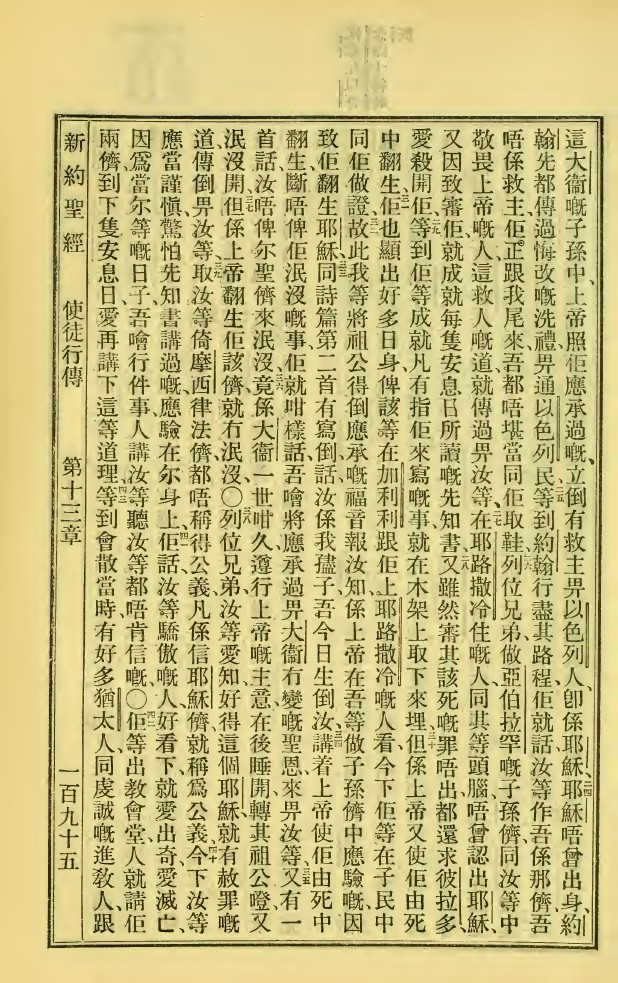 這大衞嘅子孫中、上帝照佢應承過嘅、立倒有救主畀以色列人、卽係耶穌、二四耶穌唔曾出身、約
翰先都傳過悔改嘅洗禮畀通以色列民、二五等到約翰行盡其路程、佢就話汝等作吾係那儕、吾
唔係救主、佢正跟我尾來、吾都唔堪當同佢取鞋、二六列位兄弟、做亞伯拉罕嘅子孫儕、同汝等中
敬畏上帝嘅人、這救人嘅道、就傳過畀汝等、二七在耶路撒冷住嘅人、同其等頭腦、唔曾認出耶穌、
又因致審佢、就成就每隻安息日所讀嘅先知書、二八又雖然審其該死嘅罪唔出、都還求彼拉多、
愛殺開佢、二九等到佢等成就凡有指佢來寫嘅事、就在木架上取下來埋、三十但係上帝又使佢由死
中翻生、三一佢也顯出好多日身、俾該等在加利利跟佢上耶路撒冷嘅人看、今下佢等在子民中
同佢做證、三二故此我等將祖公得倒應承嘅福音報汝知、三三係上帝在吾等做子孫儕中應驗嘅、因
致佢翻生耶穌、同詩篇第二首有寫倒話、汝係我孻子、吾今日生倒汝、三四講着上帝使佢由死中
翻生、斷唔俾佢泯沒嘅事、佢就咁樣話、吾噲將應承過畀大衞冇變嘅聖恩、來畀汝等、三五又有一
首話、汝唔俾尔聖儕來泯沒、三六竟係大衞一世咁久、遵行上帝嘅主意、在後睡開、轉其祖公嶝、又
泯沒開、三七但係上帝翻生佢該儕、就冇泯沒〇三八列位兄弟、汝等愛知好得這個耶穌、就有赦罪嘅
道傳倒畀汝等、三九取汝等倚摩西律法儕、都唔稱得公義、凡係信耶穌儕、就稱爲公義、四十今下汝等
應當謹愼、驚怕先知書講過嘅、應驗在尔身上、四一佢話、汝等驕傲嘅人、好看下、就愛出奇、愛滅亡、
因爲當尔等嘅日子、吾噲行件事、人講汝等聽、汝等都唔肯信嘅〇四二佢等出教會堂、人就請佢
兩儕、到下隻安息日、愛再講下這等道理、四三等到會散當時、有好多猶太人、同虔誠嘅進敎人、跟
新約聖經 使徒行傳 第十三章 一百九十五